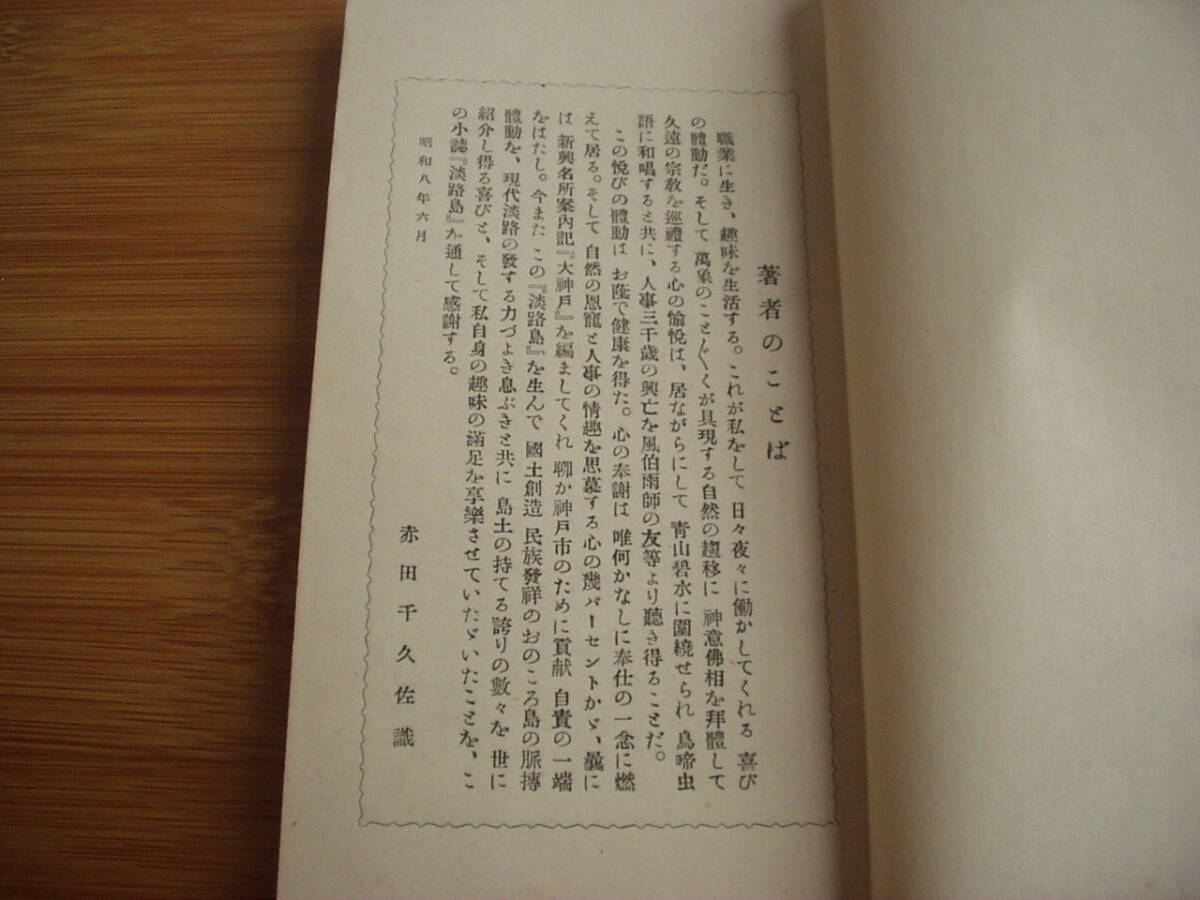 著者のことば
職業に生き、趣味を生活する。これが私をして 日々夜々に働かしてくれる 喜び
の體動だ。そして 萬象のこと〴〵くが具現する自然の趨移に 神意佛相を拜體して
久遠の宗教を巡禮する心の愉悅は、居ながらにして 靑山碧水に圍繞せられ 鳥啼虫
語に和唱すると共に、人事三千歲の興亡を風伯雨師の友等より聽き得ることだ。
この悅びの體動は お蔭で健康を得た。心の奉謝は 唯何かなしに奉仕の一念に燃
えて居る。そして 自然の恩寵と人事の情趣を思慕する心の幾パーセントかゞ、曩に
は 新興名所案內記『大神戶』を編ましてくれ 聊か神戶市のために貢献 自責の一端
をはたし。今また この『淡路島』を生んで 國土創造 民族發祥のおのころ島の脈搏
體動を、現代淡路の發する力づよき息ぶきと共に 島土の持てる誇りの數々を 世に
紹介し得る喜びと、そして私自身の趣味の滿足を享樂させていたゞいたことを、こ
の小誌『淡路島』を通して感謝する。
昭和八年六月
赤田千久佐識